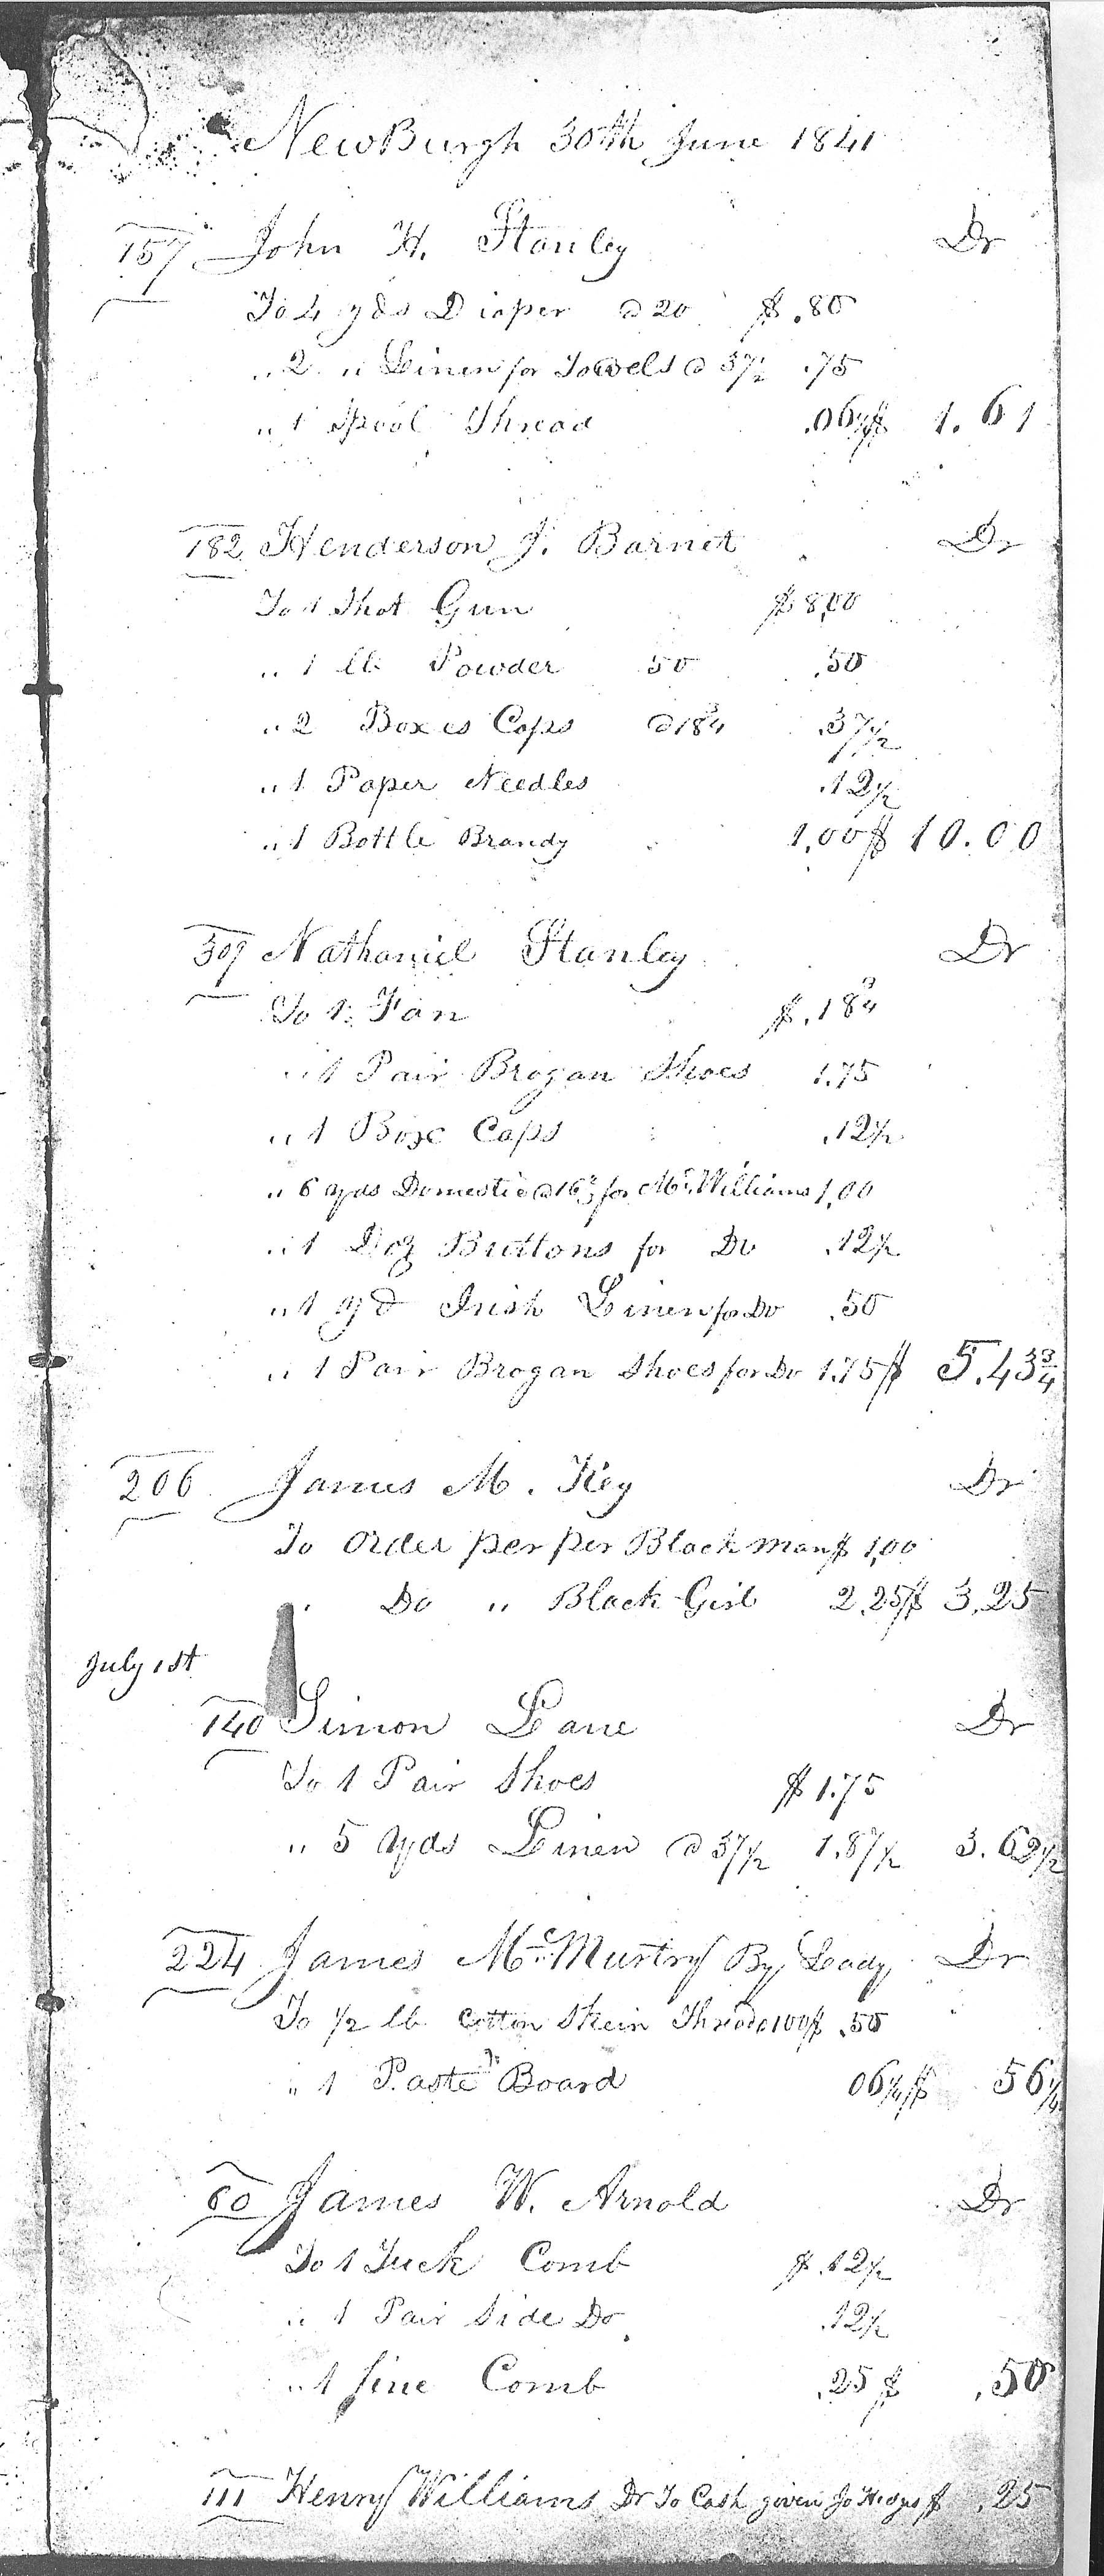 NewBurgh 30th June 1841
157 John H. Stanley Dr
To 4 yds Diaper @ 20 $ .80
" 2 " Linen for Towels @ 37½ .75
" 1 Spool Thread .06¼ $ 1.61
182 Henderson J. Barnet Dr
To 1 Shot Gun $ 8,00
" 1 lb Powder 50 .50
" 2 Boxes Caps @ 18¾ .37½
" 1 Paper Needles .12½
" 1 Bottle Brandy 1,00 $ 10.00
307 Nathaniel Stanley Dr
To 1 Fan $ .18¾
" 1 Pair Brogan Shoes 1.75
" 1 Box Caps .12½
" 6 yds Domestic @ 16⅔ for Mr Williams 1,00
" 1 Doz Buttons for Do .12½
" 1 yd Irish Linen for Do .50
" 1 Pair Brogan Shoes for Do 1.75 $ 5.43¾
206 James M. Key Dr
To Order per per Black man $ 1,00
" Do " Black Girl 2.25 $ 3,25
July 1st
140 Simon Lane Dr
To 1 Pair Shoes $ 1.75
" 5 yds Linen @ 37½ 1.87½ 3.62½
224 James McMurtry By Lady Dr
To ½ lb Cotton Skein Thread @ 100 $ .50
" 1 Paste Board 06¼ $ 56¼
60 James W. Arnold Dr
To 1 Tuck Comb $ .12½
" 1 Pair Side Do .12½
" 1 fine Comb .25 $ .50
111 Henry Williams Dr To Cash given Jo Hedges $ .25